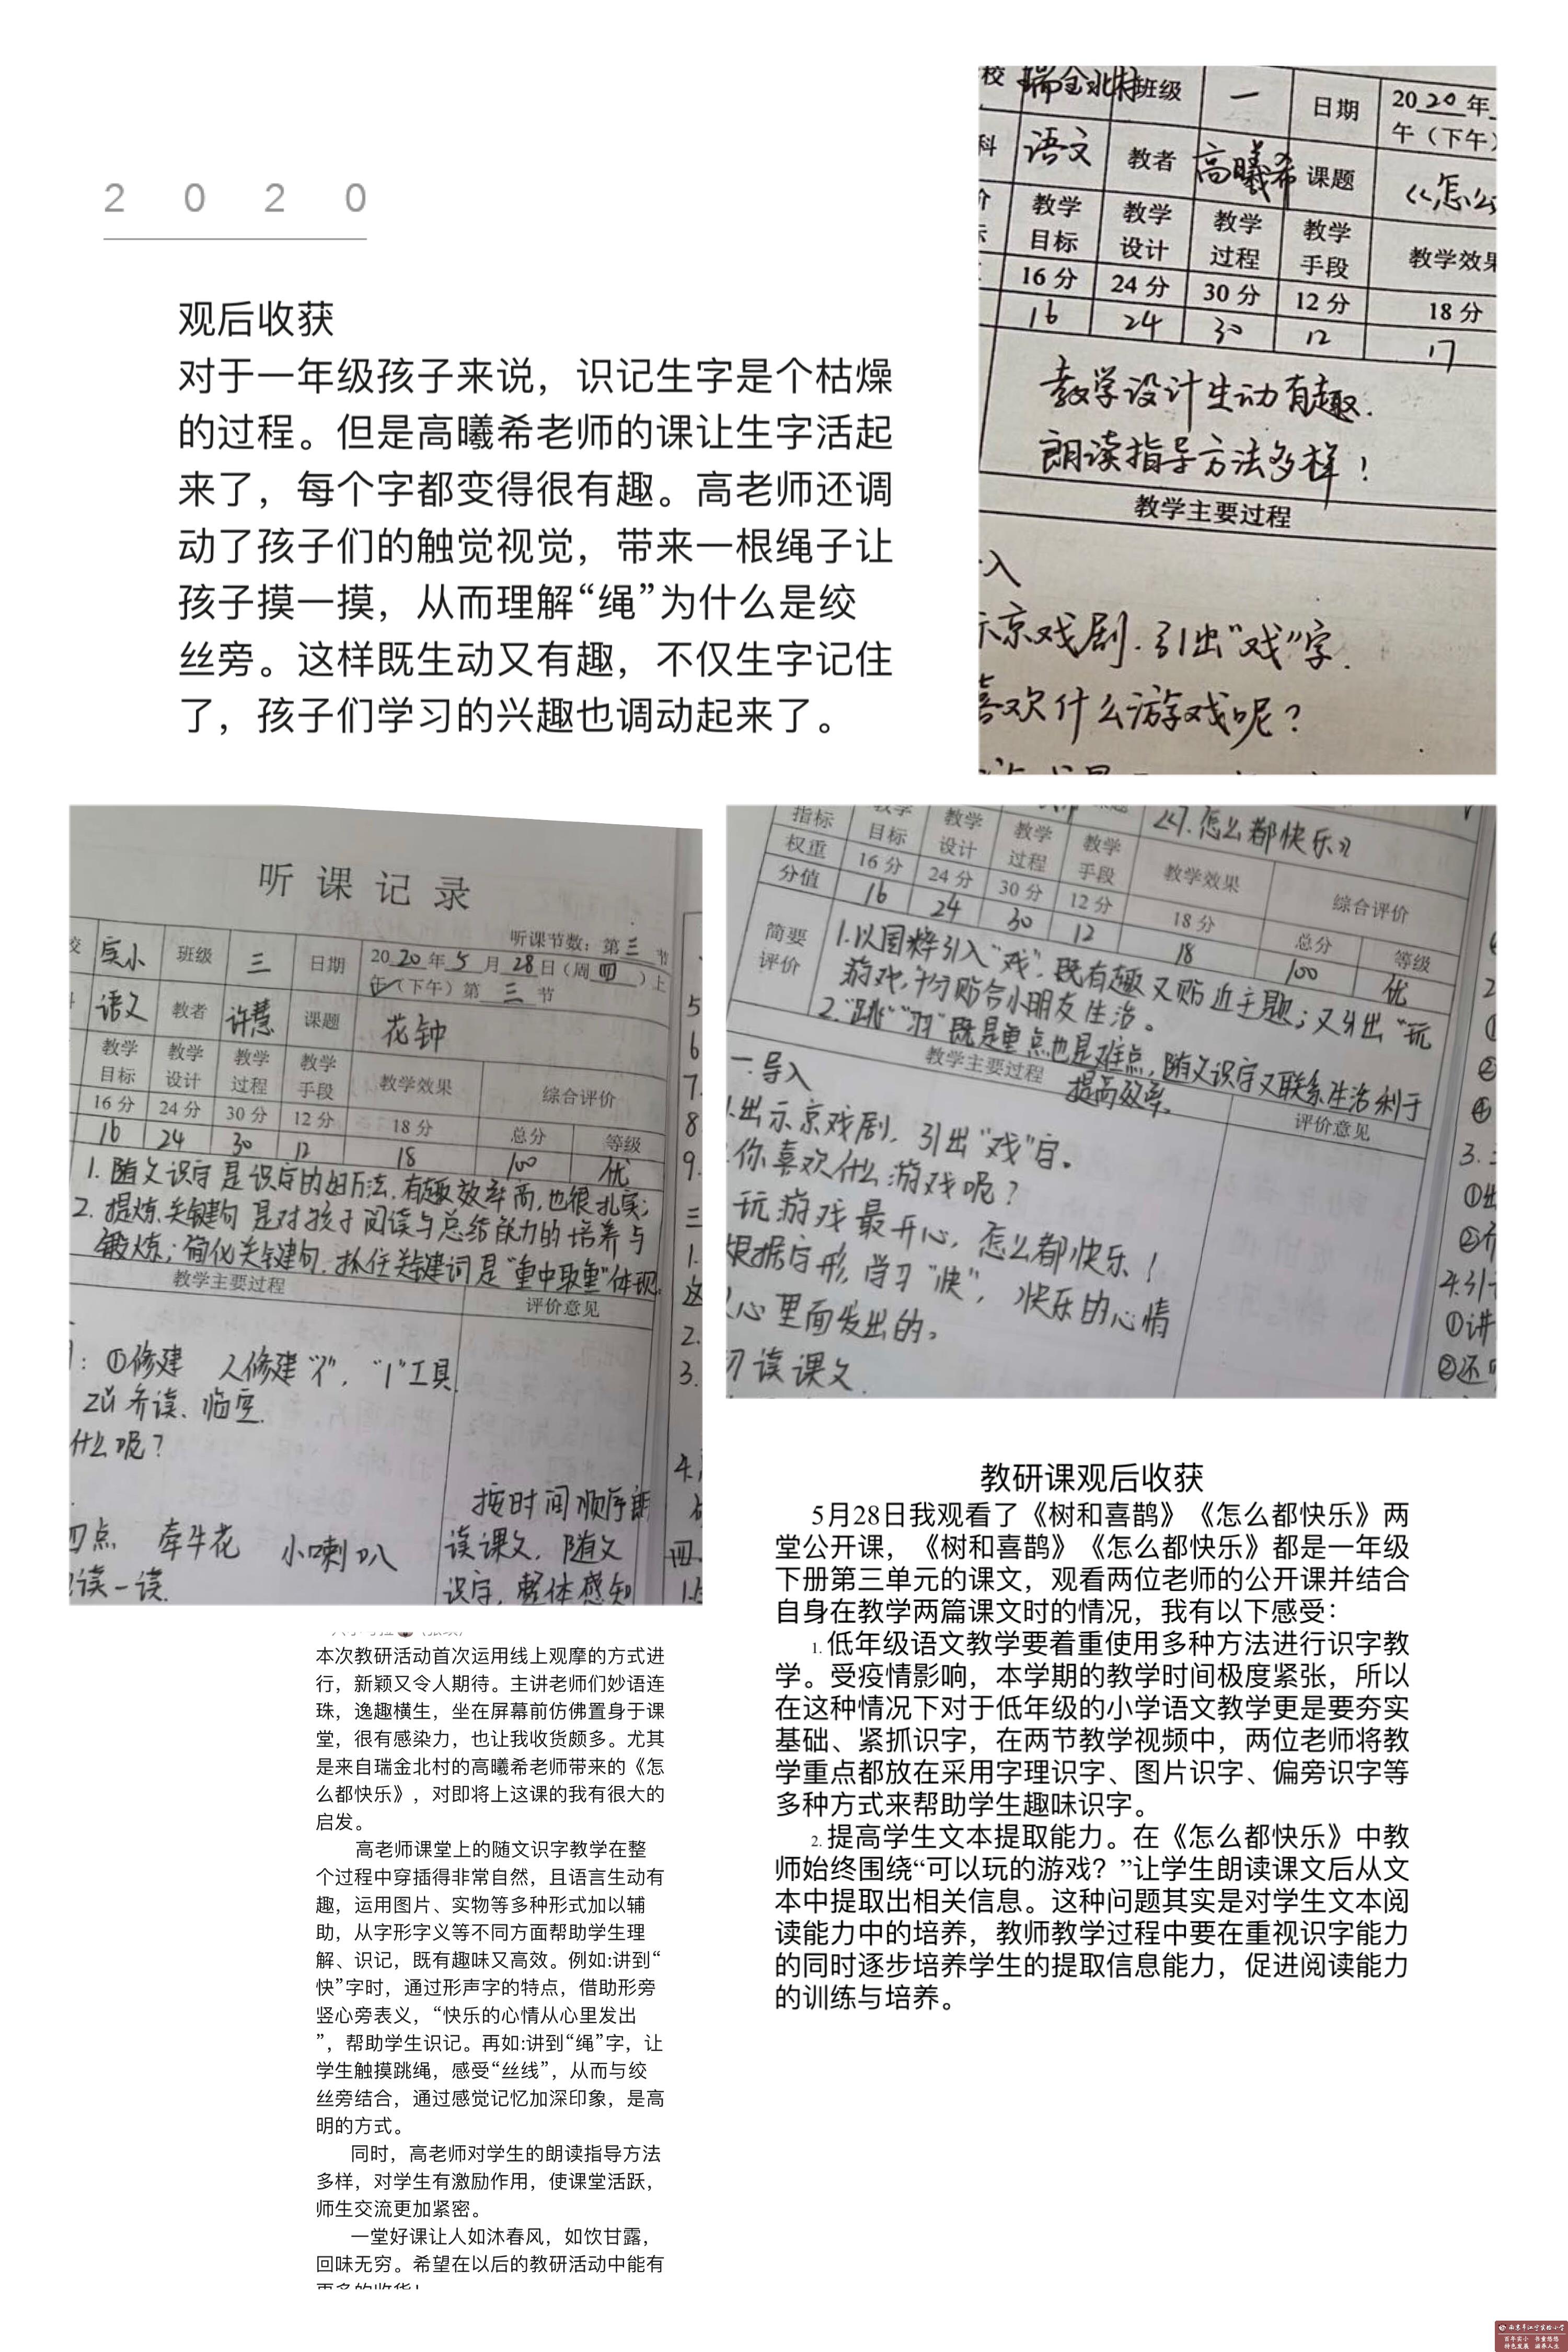 2020
观后收获
对于一年级孩子来说，识记生字是个枯燥
的过程。但是高曦希老师的课让生字活起
来了，每个字都变得很有趣。高老师还调
动了孩子们的触觉视觉，带来一根绳子让
孩子摸一摸，从而理解“绳”为什么是绞
丝旁。这样既生动又有趣，不仅生字记住
了，孩子们学习的兴趣也调动起来了。
校 瑞金北村 班级 一 日期 2020年
午（下午）
科 语文 教者 高曦希 课题 《怎么
教学目标 教学设计 教学过程 教学手段 教学效果
16分 24分 30分 12分 18分
16 24 30 12 17
教学设计生动有趣.
朗读指导方法多样！
教学主要过程
入
示京戏剧.引出“戏”字.
喜欢什么游戏呢？
听课记录
听课节数：第三节
实小 班级 三 日期 2020年5月28日（周四）上
午（下午）第三节
语文 教者 许慧 课题 花钟
教学目标 教学设计 教学过程 教学手段 教学效果 综合评价
16分 24分 30分 12分 18分 总分 等级
16 24 30 12 18 100 优
1. 随文识字是识字的好方法,有趣效率高,也很扎实;
2. 提炼关键句是对孩子阅读与总结能力的培养与
锻炼;简化关键句.抓住关键词是“重中取重”体现.
教学主要过程
评价意见
：①修建 人修建“亻”，“丨”工具.
齐读、临空.
什么呢？
四点 牵牛花 小喇叭
读一读.
按时间顺序朗
读课文，随文
识字，整体感知
《7.怎么都快乐》
指标 教学目标 教学设计 教学过程 教学手段 教学效果 综合评价
权重 16分 24分 30分 12分 18分 总分 等级
分值 16 24 30 12 18 100 优
简要评价
1.以国粹引入“戏”，既有趣又贴近主题；又引出“玩
游戏，十分贴合小朋友生活。
2.“跳”“羽”既是重点也是难点，随文识字又联系生活利于
提高效率.
教学主要过程
评价意见
一.导入
1.出示京戏剧，引出“戏”字。
你喜欢什么游戏呢？
玩游戏最开心，怎么都快乐！
根据字形，学习“快”，快乐的心情
从心里面发出的。
初读课文.
本次教研活动首次运用线上观摩的方式进
行，新颖又令人期待。主讲老师们妙语连
珠，逸趣横生，坐在屏幕前仿佛置身于课
堂，很有感染力，也让我收货颇多。尤其
是来自瑞金北村的高曦希老师带来的《怎
么都快乐》，对即将上这课的我有很大的
启发。
高老师课堂上的随文识字教学在整
个过程中穿插得非常自然，且语言生动有
趣，运用图片、实物等多种形式加以辅
助，从字形字义等不同方面帮助学生理
解、识记，既有趣味又高效。例如:讲到“
快”字时，通过形声字的特点，借助形旁
竖心旁表义，“快乐的心情从心里发出
”，帮助学生识记。再如:讲到“绳”字，让
学生触摸跳绳，感受“丝线”，从而与绞
丝旁结合，通过感觉记忆加深印象，是高
明的方式。
同时，高老师对学生的朗读指导方法
多样，对学生有激励作用，使课堂活跃，
师生交流更加紧密。
一堂好课让人如沐春风，如饮甘露，
回味无穷。希望在以后的教研活动中能有
更多的收货！
教研课观后收获
5月28日我观看了《树和喜鹊》《怎么都快乐》两
堂公开课，《树和喜鹊》《怎么都快乐》都是一年级
下册第三单元的课文，观看两位老师的公开课并结合
自身在教学两篇课文时的情况，我有以下感受：
1. 低年级语文教学要着重使用多种方法进行识字教
学。受疫情影响，本学期的教学时间极度紧张，所以
在这种情况下对于低年级的小学语文教学更是要夯实
基础、紧抓识字，在两节教学视频中，两位老师将教
学重点都放在采用字理识字、图片识字、偏旁识字等
多种方式来帮助学生趣味识字。
2. 提高学生文本提取能力。在《怎么都快乐》中教
师始终围绕“可以玩的游戏？”让学生朗读课文后从文
本中提取出相关信息。这种问题其实是对学生文本阅
读能力中的培养，教师教学过程中要在重视识字能力
的同时逐步培养学生的提取信息能力，促进阅读能力
的训练与培养。